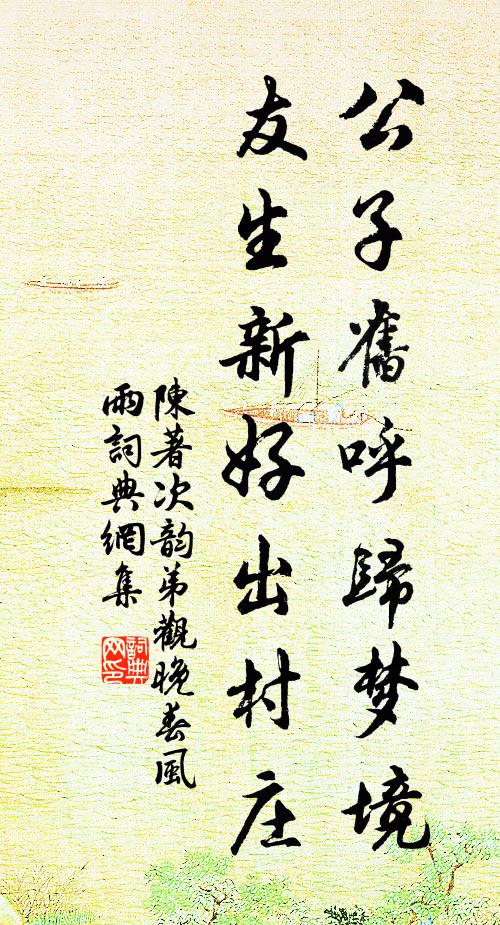 公子舊呼歸梦境
友生新好出村庄
陳著次韵弟觀晚春風
雨詞典網集
詞典网印